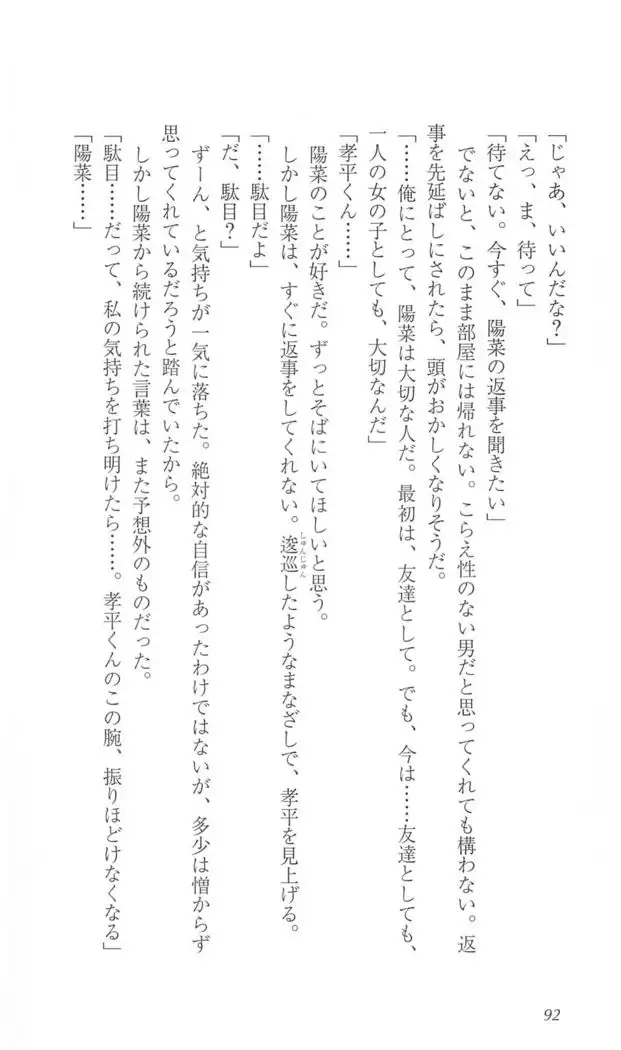 「じゃあ、いいんだな？」
「えっ、ま、待って」
「待てない。今すぐ、陽菜の返事を聞きたい」
でないと、このまま部屋には帰れない。こらえ性のない男だと思ってくれても構わない。返
事を先延ばしにされたら、頭がおかしくなりそうだ。
「……俺にとって、陽菜は大切な人だ。最初は、友達として。でも、今は……友達としても、
一人の女の子としても、大切なんだ」
「孝平くん……」
陽菜のことが好きだ。ずっとそばにいてほしいと思う。
しかし陽菜は、すぐに返事をしてくれない。逡巡したようなまなざしで、孝平を見上げる。
しゅんじゅん
「……駄目だよ」
「だ、駄目？」
ずーん、と気持ちが一気に落ちた。絶対的な自信があったわけではないが、多少は憎からず
思ってくれているだろうと踏んでいたから。
しかし陽菜から続けられた言葉は、また予想外のものだった。
「駄目……だって、私の気持ちを打ち明けたら……。孝平くんのこの腕、振りほどけなくなる」
「陽菜……」
92